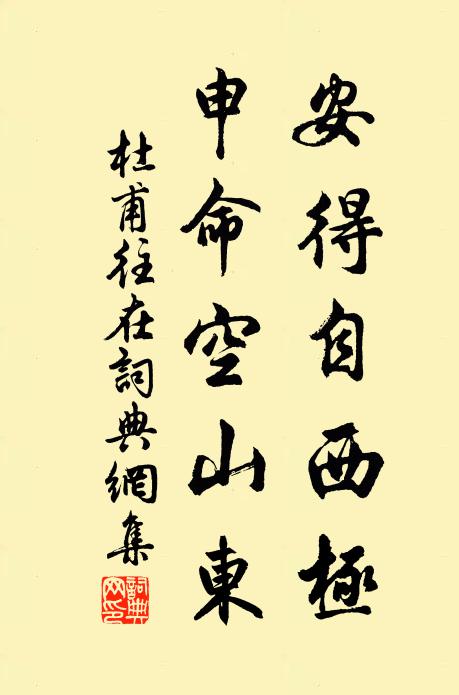 安得自西極
申命空山東
杜甫往在詞典網集
詞典网印